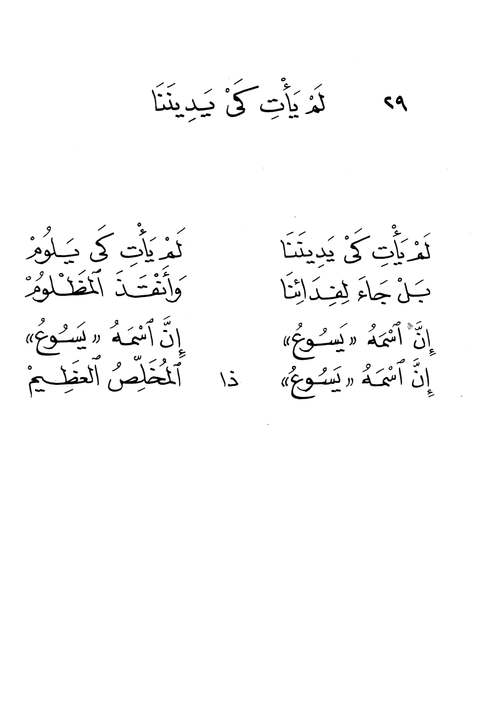 ٢٩ لَمْ يَأْتِ كَىْ يَدِينَنَا
لَمْ يَأْتِ كَىْ يَدِينَنَا لَمْ يَأْتِ كَى يَلُومْ
بَلْ جَاءَ لِفِدَائِنَا وَأَنْقَذَ ٱلمَظْلُومْ
إِنَّ ٱسْمَهُ «يَسُوعُ» إِنَّ ٱسْمَهُ «يَسُوعُ»
إِنَّ ٱسْمَهُ «يَسُوعُ» ذا ٱلمُخَلِّصُ ٱلعَظِيمْ